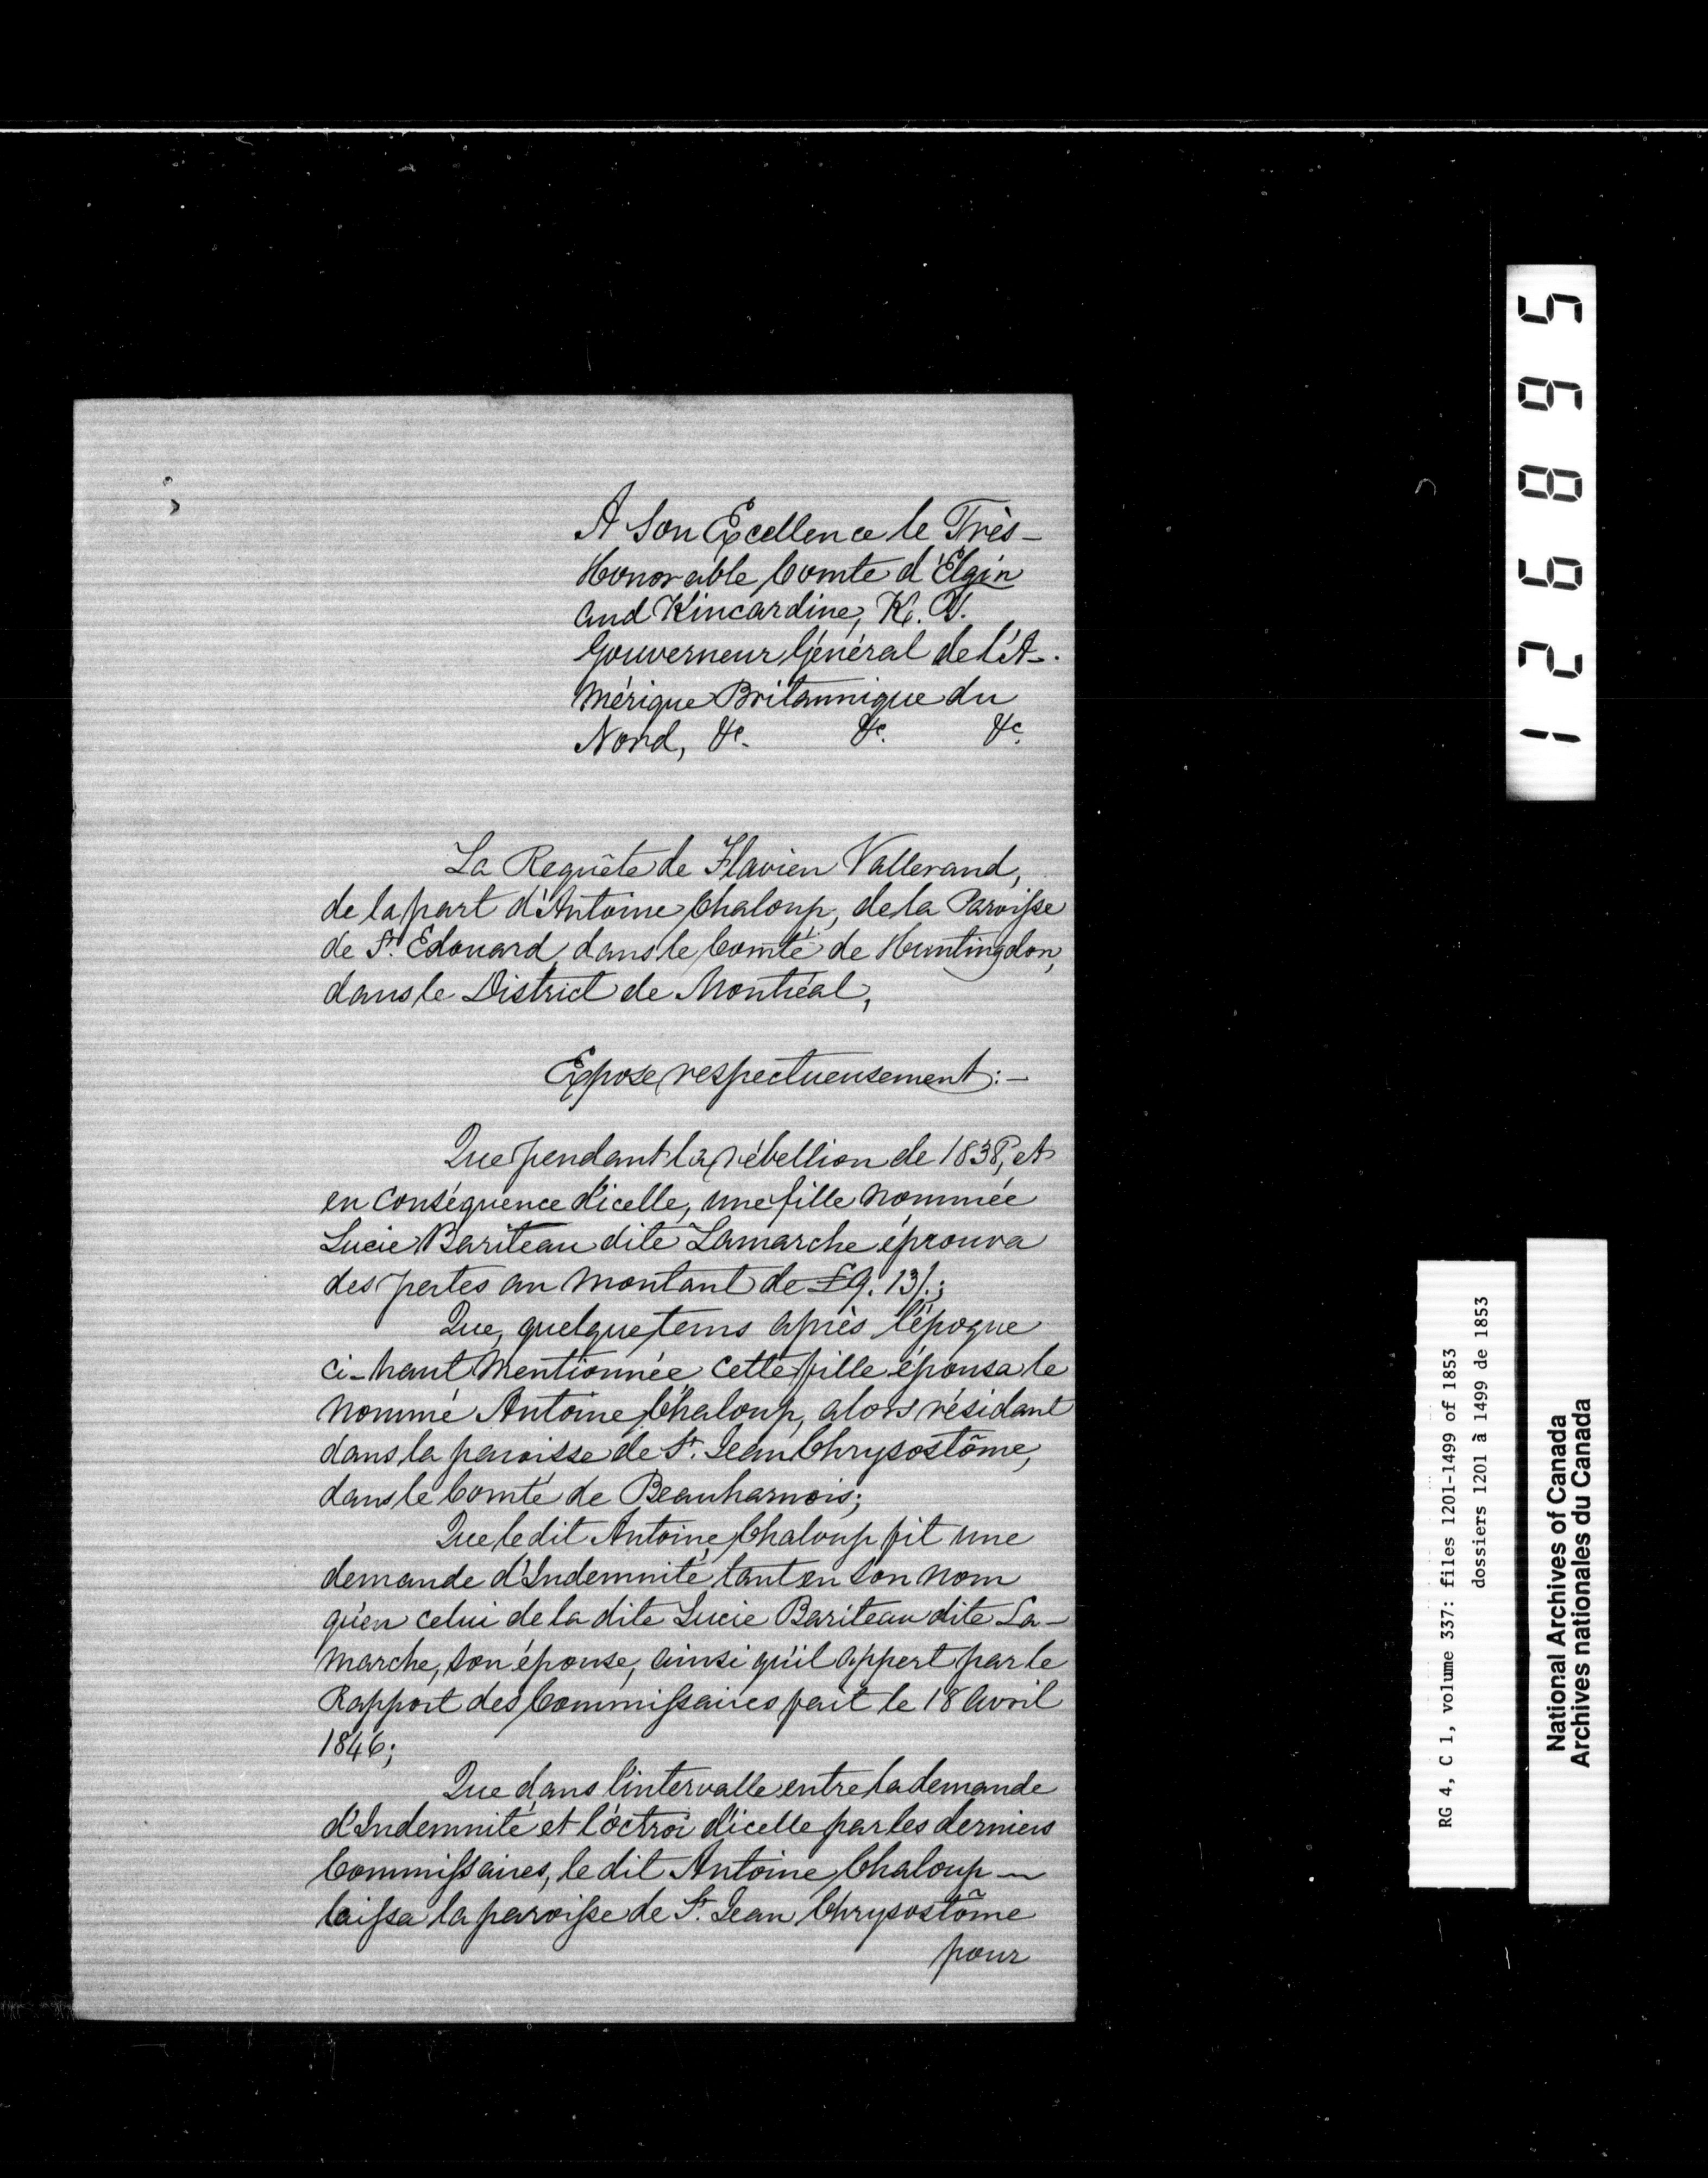 A Son Excellence le Très-
Honorable Comte d'Elgin
and Kincardine, K. T.
Gouverneur Général de l'A-
mérique Britannique du
Nord, &c. &c. &c.
La Requête de Flavien Vallerand,
de la part d'Antoine Chaloup, de la Paroisse
de St. Edouard, dans le Comté de Huntingdon,
dans le District de Montréal,
Expose respectueusement:—
Que pendant la rébellion de 1838, et
en conséquence d'icelle, une fille nommée
Lucie Bariteau dite Lamarche éprouva
des pertes au montant de £9. 13/.;
Que, quelque tems après l'époque
ci-haut mentionnée cette fille épousa le
nommé Antoine Chaloup, alors résidant
dans la paroisse de St. Jean Chrysostôme,
dans le Comté de Beauharnois;
Que le dit Antoine Chaloup fit une
demande d'Indemnité, tant en son nom
qu'en celui de la dite Lucie Bariteau dite La-
marche, son épouse, ainsi qu'il appert par le
Rapport des Commissaires fait le 18 Avril
1846;
Que dans l'intervalle entre la demande
d'Indemnité et l'octroi d'icelle par les derniers
Commissaires, le dit Antoine Chaloup
laissa la paroisse de St. Jean Chrysostôme
pour
126895
RG 4, C 1, volume 337: files 1201-1499 of 1853
dossiers 1201 à 1499 de 1853
National Archives of Canada
Archives nationales du Canada